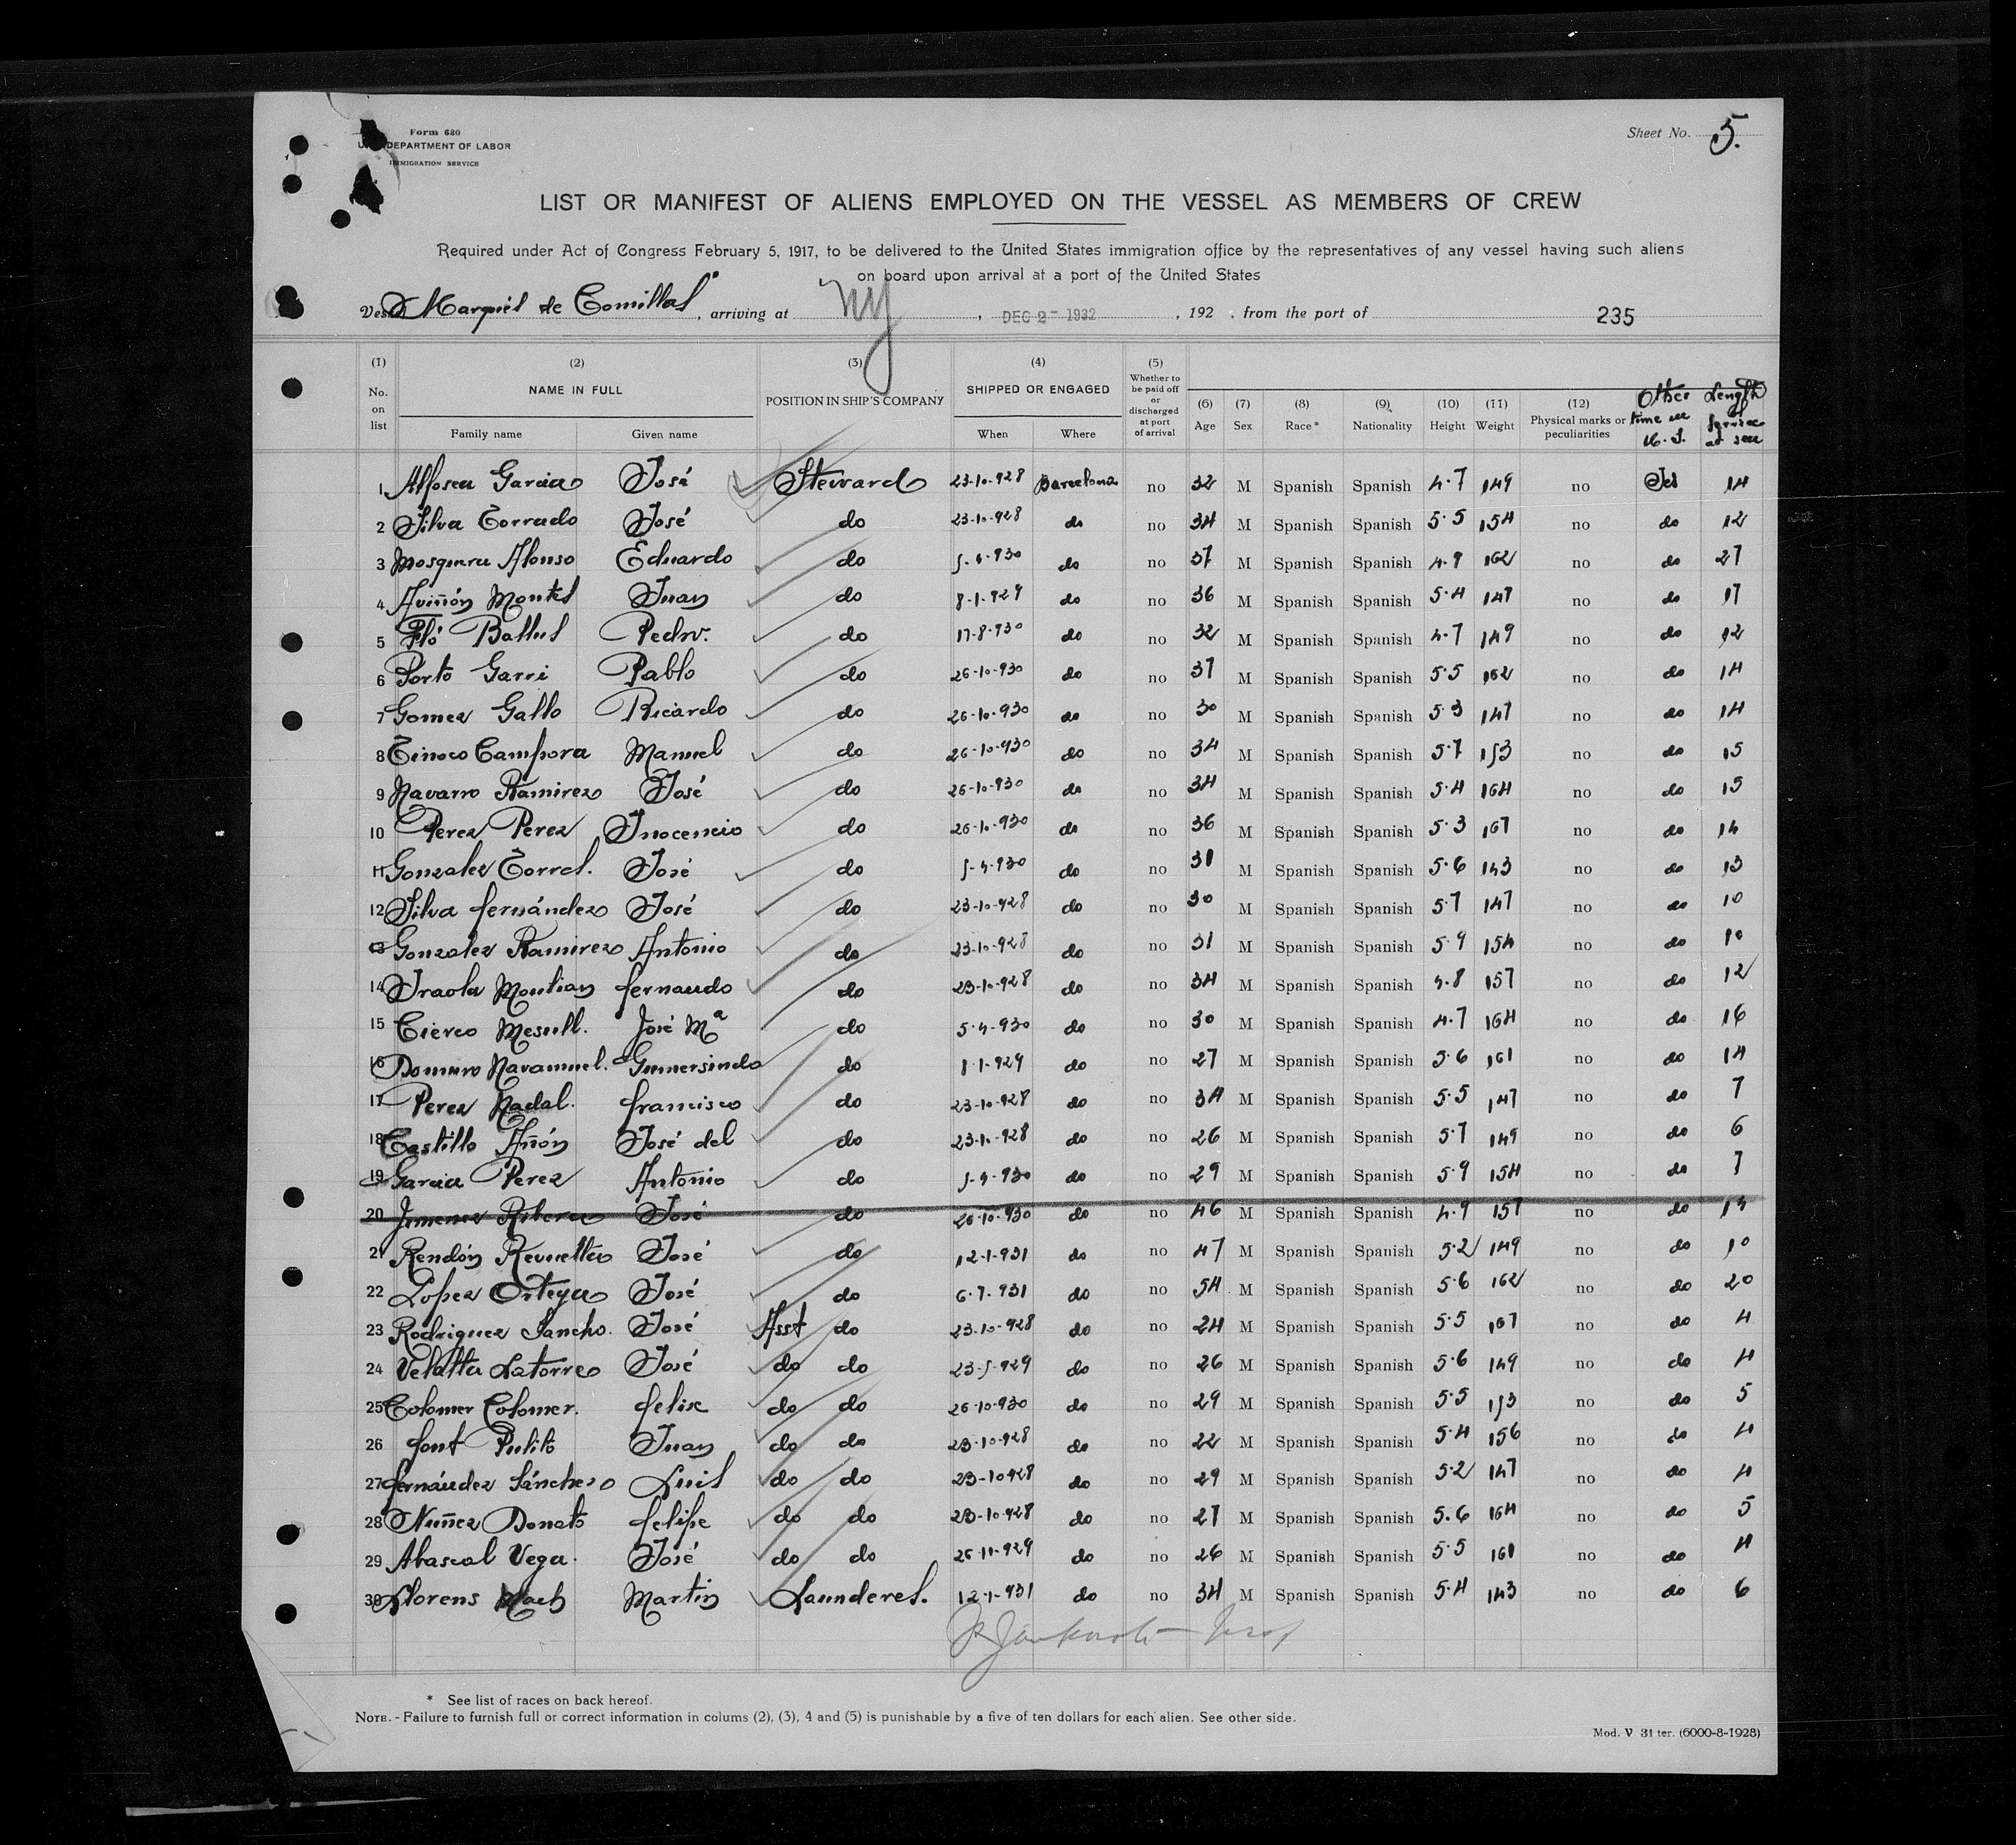 Form 680
DEPARTMENT OF LABOR
IMMIGRATION SERVICE
Sheet No. 5.
LIST OR MANIFEST OF ALIENS EMPLOYED ON THE VESSEL AS MEMBERS OF CREW
Required under Act of Congress February 5, 1917, to be delivered to the United States immigration office by the representatives of any vessel having such aliens
on board upon arrival at a port of the United States
Marqués de Comillas", arriving at NY, DEC 2- 1932, 192 , from the port of 235
(1) (2) (3) (4) (5)
No. on list NAME IN FULL POSITION IN SHIP'S COMPANY SHIPPED OR ENGAGED Whether to be paid off or discharged at port of arrival (6) Age (7) Sex (8) Race* (9) Nationality (10) Height (11) Weight (12) Physical marks or peculiarities Other time in U.S. Length of Service at sea
Family name Given name When Where
1 Alfosea Garcia José Steward 23-10-928 Barcelona no 32 M Spanish Spanish 4.7 149 no Yes 14
2 Silva Corrado José do 23-10-928 do no 34 M Spanish Spanish 5.5 154 no do 12
3 Mosquera Afonso Eduardo do 5-4-930 do no 37 M Spanish Spanish 4.9 162 no do 27
4 Aviñón Montes Juan do 8-1-929 do no 36 M Spanish Spanish 5.4 147 no do 17
5 Fló Ballus Pedro. do 17-8-930 do no 32 M Spanish Spanish 4.7 149 no do 12
6 Porto Garri Pablo do 26-10-930 do no 37 M Spanish Spanish 5.5 162 no do 14
7 Gomez Gallo Ricardo do 26-10-930 do no 30 M Spanish Spanish 5.3 147 no do 14
8 Tinoco Campora Manuel do 26-10-930 do no 34 M Spanish Spanish 5.7 153 no do 15
9 Navarro Ramirez José do 26-10-930 do no 34 M Spanish Spanish 5.4 164 no do 15
10 Perez Perez Inocencio do 26-10-930 do no 36 M Spanish Spanish 5.3 167 no do 14
11 Gonzalez Torres. José do 5-4-930 do no 31 M Spanish Spanish 5.6 143 no do 13
12 Silva fernández José do 23-10-928 do no 30 M Spanish Spanish 5.7 147 no do 10
13 Gonzalez Ramirez Antonio do 23-10-928 do no 31 M Spanish Spanish 5.9 154 no do 10
14 Iraola Montian fernando do 23-10-928 do no 34 M Spanish Spanish 4.8 157 no do 12
15 Cierco Mesull. José Mª do 5-4-930 do no 30 M Spanish Spanish 4.7 164 no do 16
16 Navamuel. Gumersindo do 1-1-929 do no 27 M Spanish Spanish 5.6 161 no do 14
17 Perez Nadal. francisco do 23-10-928 do no 34 M Spanish Spanish 5.5 147 no do 7
18 Castillo Añón José del do 23-10-928 do no 26 M Spanish Spanish 5.7 149 no do 6
19 Garcia Perez Antonio do 5-4-930 do no 29 M Spanish Spanish 5.9 154 no do 7
20 Jimenez Ribera José do 26-10-930 do no 46 M Spanish Spanish 4.9 157 no do 14
21 Rendón Revuelta José do 12-1-931 do no 47 M Spanish Spanish 5.2 149 no do 10
22 Lopez Ortega José do 6-7-931 do no 54 M Spanish Spanish 5.6 162 no do 20
23 Rodriguez Sancho. José Asst do 23-10-928 do no 24 M Spanish Spanish 5.5 167 no do 4
24 Velatta Latorre José do do 23-5-929 do no 26 M Spanish Spanish 5.6 149 no do 4
25 Colomer Colomer. felix do do 26-10-930 do no 29 M Spanish Spanish 5.5 153 no do 5
26 font Pulito Juan do do 23-10-928 do no 22 M Spanish Spanish 5.4 156 no do 4
27 fernández Sánchez Luis do do 23-10-928 do no 29 M Spanish Spanish 5.2 147 no do 4
28 Nuñez Donato felipe do do 23-10-928 do no 27 M Spanish Spanish 5.6 164 no do 5
29 Abascal Vega. José do do 26-11-929 do no 26 M Spanish Spanish 5.5 161 no do 4
30 Llorens Martin Launderes. 12-1-931 do no 34 M Spanish Spanish 5.4 143 no do 6
* See list of races on back hereof.
NOTE. - Failure to furnish full or correct information in colums (2), (3), 4 and (5) is punishable by a five of ten dollars for each alien. See other side.
Mod. V. 31 ter. (6000-8-1928)